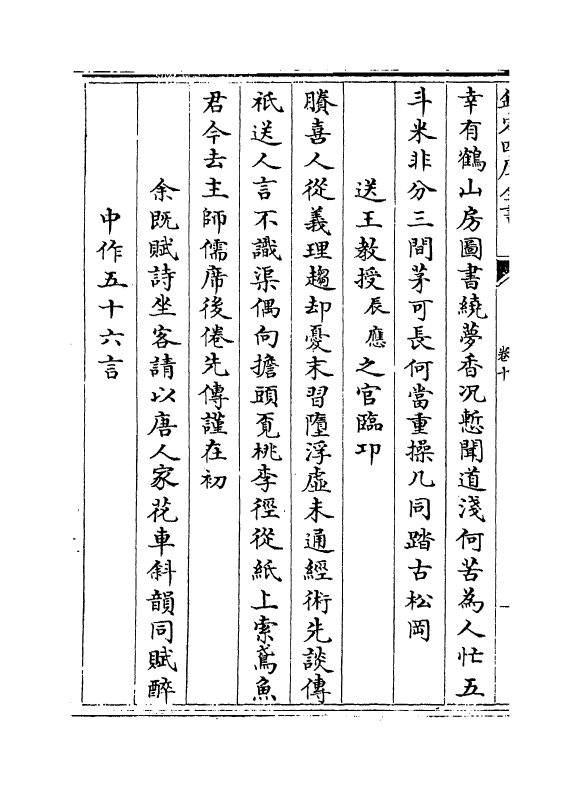 欽定四庫全書
卷十
幸有鶴山房圖書繞夢香沉慙聞道淺何苦為人忙五
斗米非分三間茅可長何當重操几同踏古松岡
送王教授辰應之官臨邛
賸喜人從義理趨却憂末習墮浮虛未通經術先談傳
袛送人言不識渠偶向擔頭覔桃李徑從紙上索鳶魚
君今去主師儒席後倦先傳謹在初
余既賦詩坐客請以唐人家花車斜韻同賦醉
中作五十六言